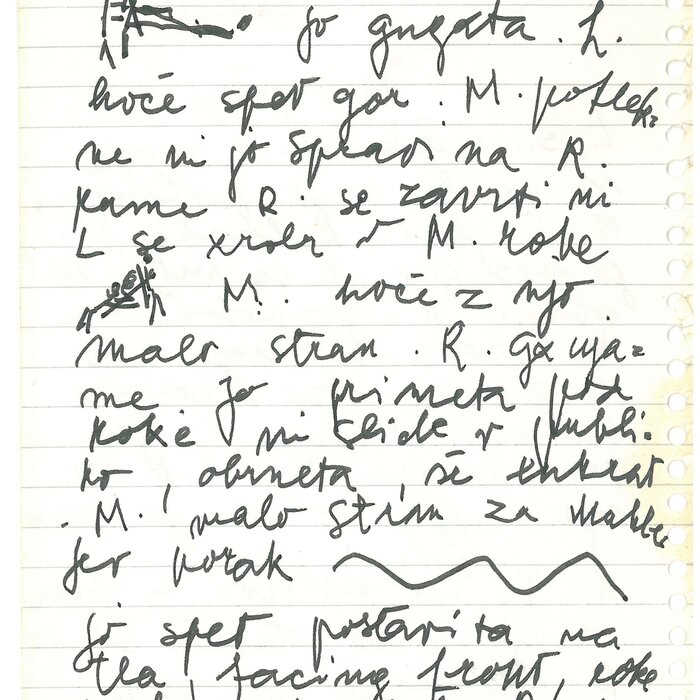 jo gugata. L.
hoče spet gor. M. poklek=
ne ni jo spravi na R.
rame R. se zavrti ni
L se zvrne v M. roke
M. hoče z njo
malo stran. R. ga uja=
me jo primeta pod
roke ni slide v publi=
ko, obrneta, še enkrat
M. malo stran za
korak
jo spet postavita na
tla, facing front, roke